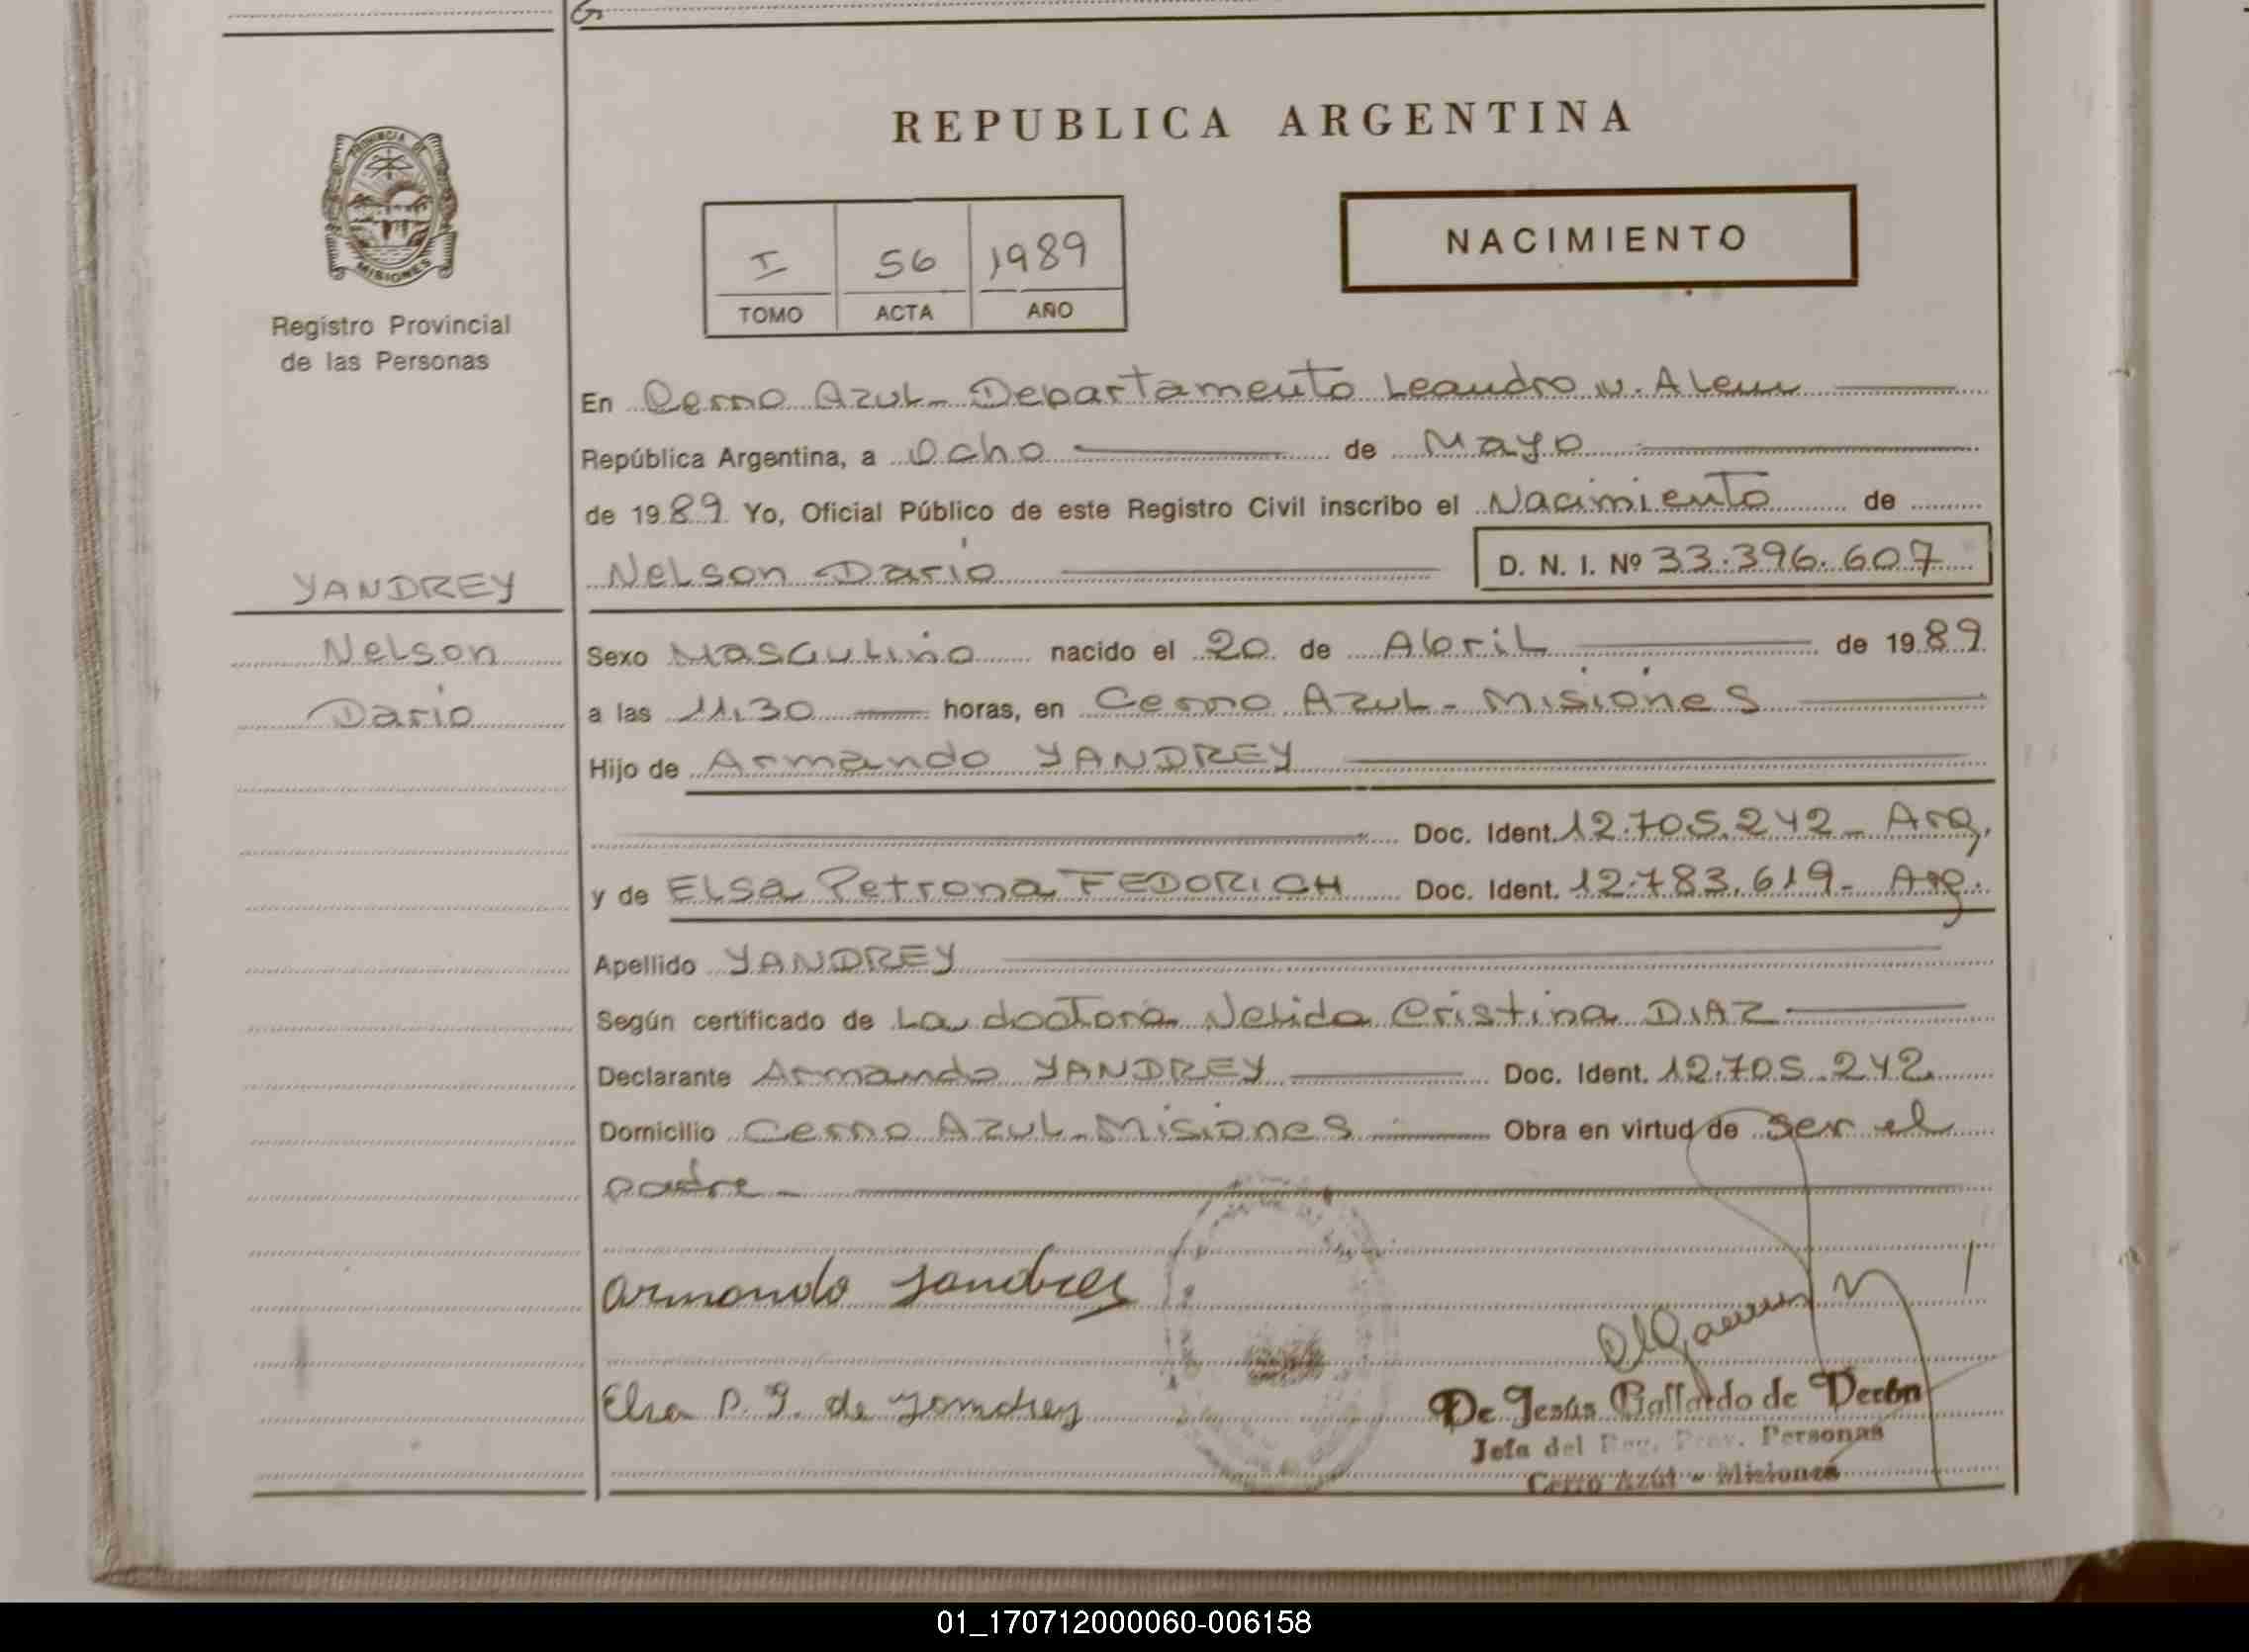 REPUBLICA ARGENTINA
PROVINCIA DE
MISIONES
Registro Provincial
de las Personas
I 56 1989
TOMO ACTA AÑO
NACIMIENTO
En Cerro Azul - Departamento Leandro N. Alem
República Argentina, a Ocho de Mayo
de 1989 Yo, Oficial Público de este Registro Civil inscribo el Nacimiento de
Nelson Dario D. N. I. Nº 33.396.607
YANDREY
Nelson
Dario
Sexo Masculino nacido el 20 de Abril de 1989
a las 11.30 horas, en Cerro Azul - Misiones
Hijo de Armando YANDREY
Doc. Ident. 12.705.242 - Arg.
y de Elsa Petrona FEDORICH Doc. Ident. 12.783.619 - Arg.
Apellido YANDREY
Según certificado de La doctora Nelida Cristina DIAZ
Declarante Armando YANDREY Doc. Ident. 12.705.242
Domicilio Cerro Azul - Misiones Obra en virtud de ser el
padre -
Armando Yandrey
Elsa P. F. de Yandrey
De Jesús Gallardo de
Jefa del Reg. Prov. Personas
Cerro Azúl - Misiones
01_170712000060-006158